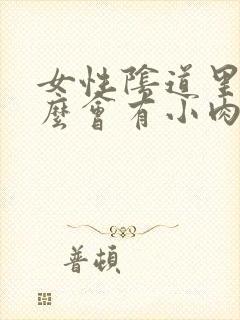 女性陰道里
麼會有小肉
普頓